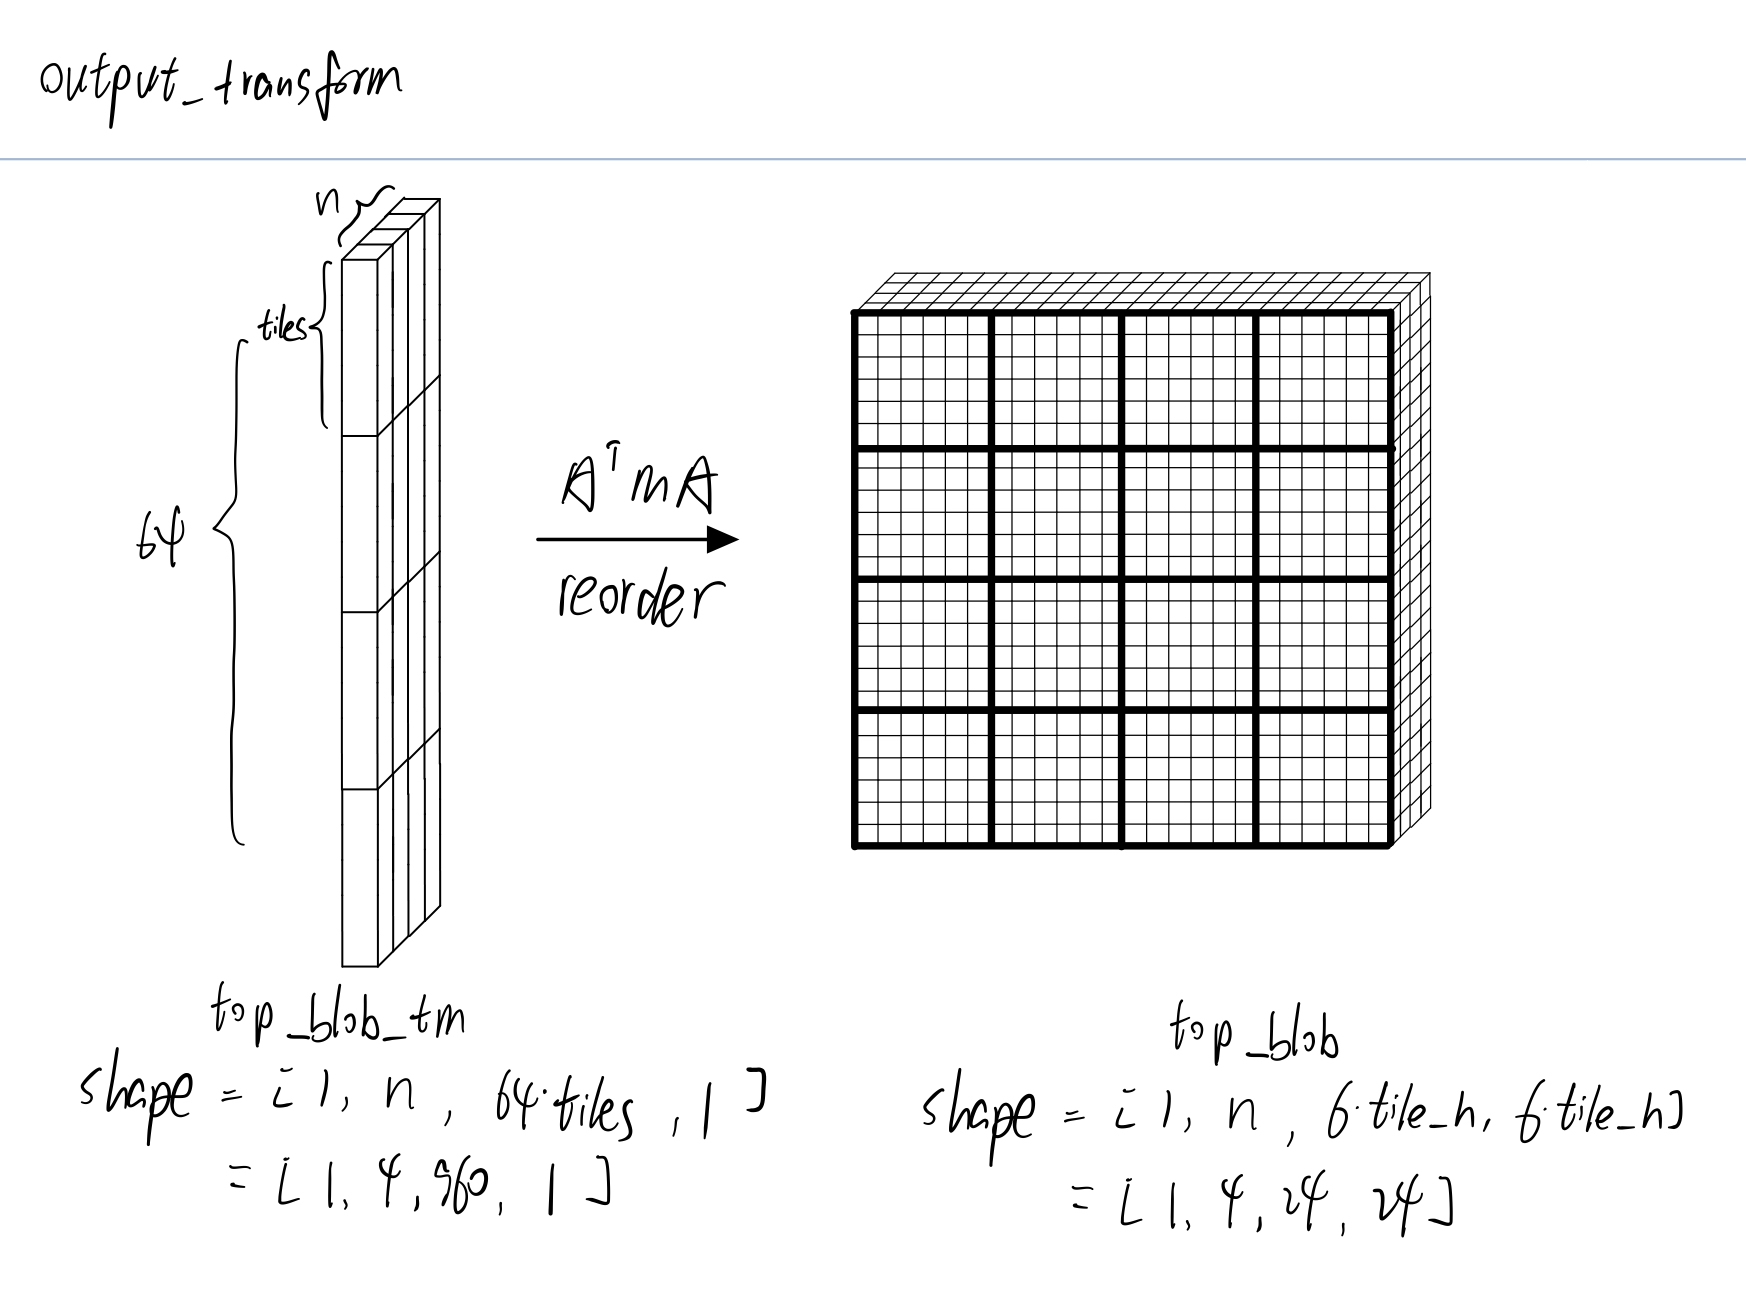 output_transform
n
tiles
64
AᵀmA
reorder
top_blob_tm
shape = [1, n, 64·tiles, 1]
= [1, 4, 960, 1]
top_blob
shape = [1, n, 6·tile_h, 6·tile_h]
= [1, 4, 24, 24]